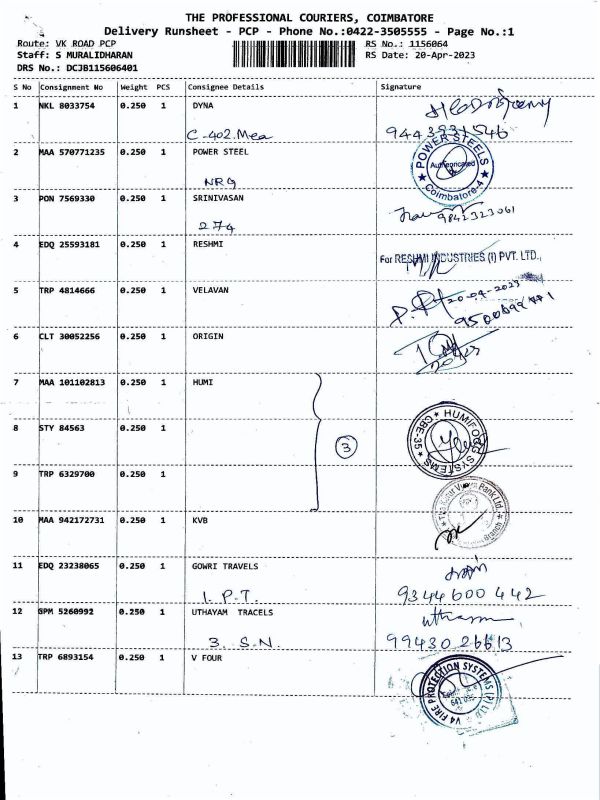 THE PROFESSIONAL COURIERS, COIMBATORE
Delivery Runsheet - PCP - Phone No.:0422-3505555 - Page No.:1
Route: VK ROAD PCP RS No.: 1156064
Staff: S MURALIDHARAN RS Date: 20-Apr-2023
DRS No.: DCJB115606401
S No Consignment No Weight PCS Consignee Details Signature
1 NKL 8033754 0.250 1 DYNA
C-402.Mea 9443931546
2 MAA 570771235 0.250 1 POWER STEEL POWER STEELS Coimbatore-4
NRG
3 PON 7569330 0.250 1 SRINIVASAN 9842323061
274
4 EDQ 25593181 0.250 1 RESHMI For RESHMI INDUSTRIES (I) PVT. LTD.,
5 TRP 4814666 0.250 1 VELAVAN 20-04-2023
6 CLT 30052256 0.250 1 ORIGIN
7 MAA 101102813 0.250 1 HUMI
8 STY 84563 0.250 1 3 HUMIFOGG SYSTEMS CBE-35
9 TRP 6329700 0.250 1
10 MAA 942172731 0.250 1 KVB The Karur Vysya Bank Ltd. Branch
11 EDQ 23238065 0.250 1 GOWRI TRAVELS
1. P.T. 9344600442
12 GPM 5260992 0.250 1 UTHAYAM TRACELS
3. S.N. 9943026613
13 TRP 6893154 0.250 1 V FOUR V4 FIRE PROTECTION SYSTEMS (P) LTD